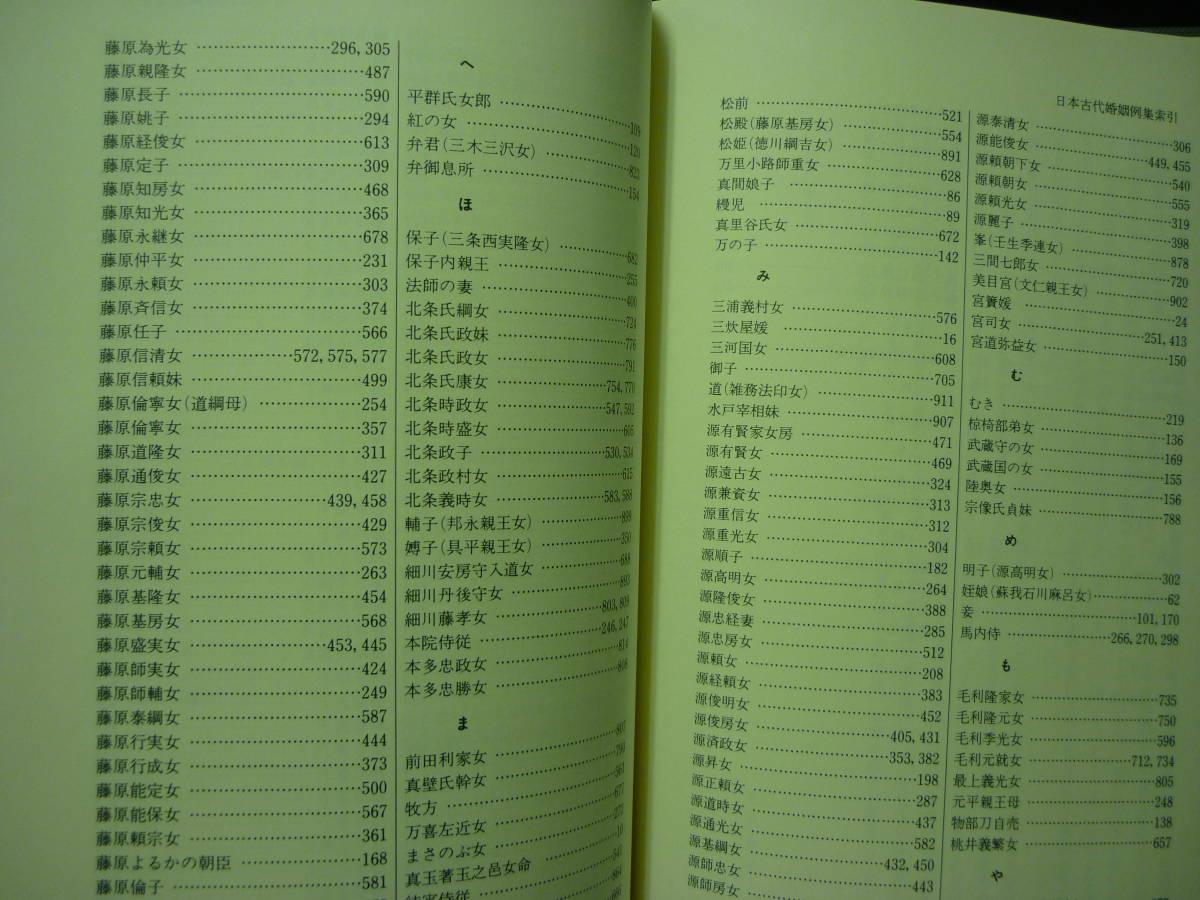 藤原為光女 296, 305
藤原親隆女 487
藤原長子 590
藤原姚子 294
藤原経俊女 613
藤原定子 309
藤原知房女 468
藤原知光女 365
藤原永継女 678
藤原仲平女 231
藤原永頼女 303
藤原斉信女 374
藤原任子 566
藤原信清女 572, 575, 577
藤原信頼妹 499
藤原倫寧女(道綱母) 254
藤原倫寧女 357
藤原道隆女 311
藤原通俊女 427
藤原宗忠女 439, 458
藤原宗俊女 429
藤原宗頼女 573
藤原元輔女 263
藤原基隆女 454
藤原基房女 568
藤原盛実女 453, 445
藤原師実女 424
藤原師輔女 249
藤原泰綱女 587
藤原行実女 444
藤原行成女 373
藤原能定女 500
藤原能保女 567
藤原頼宗女 361
藤原よるかの朝臣 168
藤原倫子 581
へ
平群氏女郎 109
紅の女 120
弁君(三木三沢女) 823
弁御息所 154
ほ
保子(三条西実隆女) 682
保子内親王 255
法師の妻 400
北条氏綱女 724
北条氏政妹 776
北条氏政女 791
北条氏康女 754, 770
北条時政女 547, 592
北条時盛女 605
北条政子 530, 534
北条政村女 615
北条義時女 583, 588
輔子(邦永親王女) 899
嫥子(具平親王女) 350
細川安房守入道女 688
細川丹後守女 893
細川藤孝女 803, 809
本院侍従 246, 247
本多忠政女 814
本多忠勝女 808
ま
前田利家女 807
真壁氏幹女 790
牧方 561
万喜左近女 677
まさのぶ女 272
真玉著玉之邑女命 10
541
864
日本古代婚姻例集索引
松前 521
松殿(藤原基房女) 554
松姫(徳川綱吉女) 891
万里小路師重女 628
真間娘子 86
縵児 89
真里谷氏女 672
万の子 142
み
三浦義村女 576
三炊屋媛 16
三河国女 608
御子 705
道(雑務法印女) 911
水戸宰相妹 907
源有賢家女房 471
源有賢女 469
源遠古女 324
源兼資女 313
源重信女 312
源重光女 304
源順子 182
源高明女 264
源隆俊女 388
源忠経妻 285
源忠房女 512
源頼女 208
源経頼女 383
源俊明女 452
源俊房女 405, 431
源済政女 353, 382
源昇女 198
源正頼女 287
源道時女 437
源通光女 582
源基綱女 432, 450
源師忠女 443
源師房女
源泰清女 306
源能俊女 449, 455
源頼朝下女 540
源頼朝女 555
源頼光女 319
源麗子 398
峯(壬生季連女) 878
三間七郎女 720
美目宮(文仁親王女) 902
宮簀媛 24
宮司女 251, 413
宮道弥益女 150
む
むき 219
椋椅部弟女 136
武蔵守の女 169
武蔵国の女 155
陸奥女 156
宗像氏貞妹 788
め
明子(源高明女) 302
姪娘(蘇我石川麻呂女) 62
妾 101, 170
馬内侍 266, 270, 298
も
毛利隆家女 735
毛利隆元女 750
毛利季光女 596
毛利元就女 712, 734
最上義光女 805
元平親王母 248
物部刀自売 138
桃井義繁女 657
や